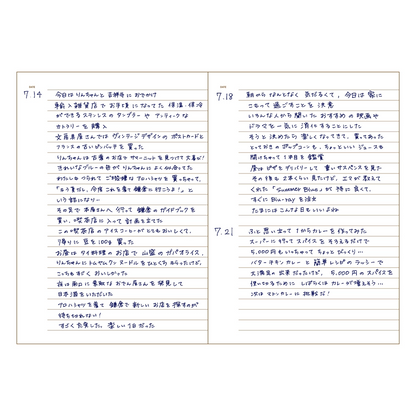 7.14
今日はりんちゃんと吉祥寺におでかけ
輸入雑貨店でお手頃になってた 保温・保冷
ができるステンレスのタンブラーや アンティークな
カトラリーを購入
文房具屋さんでは ヴィンテージデザインの ポストカードと
フランスの古いピンバッチを買った
りんちゃんは古着のお店で サマーニットを見つけて大喜び!
きれいなブルーの色が りんちゃんに よく似合ってた
という話になり…
その足で 本屋さんへ行って 鎌倉のガイドブックを
買い、喫茶店に入って計画を立てた
この喫茶店の アイスコーヒーが とてもおいしくて、
帰りに 豆を100g 買った
お昼は タイ料理のお店で 山盛のガパオライス。
りんちゃんに トムヤムクンヌードルを ひとくちもらったけど、
こっちもすごくおいしかった
夜は南口に素敵な おでん屋さんを発見して
日本酒をいただいた
すごく充実した、楽しい1日だった
7.18
朝からなんとなく 気だるくて、今日は家に
こもって過ごすことを決意
いろんな人から聞いた おすすめの映画や
ドラマを一気に消化することにした
そうと決めたら 楽しくなってきて、買ってあった
とっておきのポップコーンも、ちょっといいジュースも
開けちゃって 1本目を鑑賞
昼はピザをデリバリーして 重いサスペンスを見た
その後も 2本くらい見たけど、エマが教えて
くれた「Summer Blue」が 特に良くて、
すぐに Blu-rayを注文
たまには こんな日もいいよね
7.21
ふと思い立って 1からカレーを作ってみた
スーパーに行って スパイスをそろえるだけで
5,000円もいっちゃって ちょっとびっくり…
バターチキンカレーと 簡単レシピのラッシーで
大満足の出来だったけど、5,000円のスパイスを
使いきるために しばらくはカレーが増えそう…
次は マトンカレーに挑戦だ!